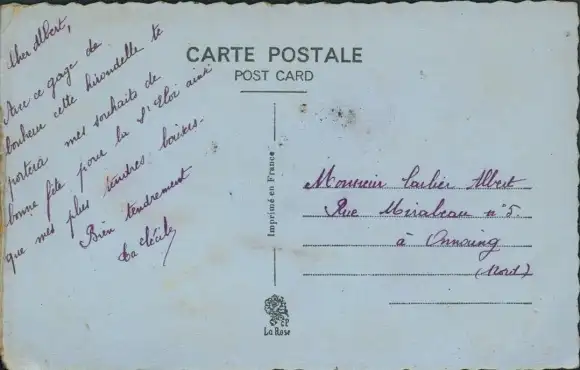 Cher Albert,
Avec ce gage de
bonheur cette hirondelle te
portera mes souhaits de
bonne fête pour la St Eloi ainsi
que mes plus tendres baisers.
Bien tendrement
Ta Cécile
CARTE POSTALE
POST CARD
Imprimé en France
Monsieur Carlier Albert
Rue Mirabeau n° 5.
à Onnaing
(Nord)
CP
La Rose